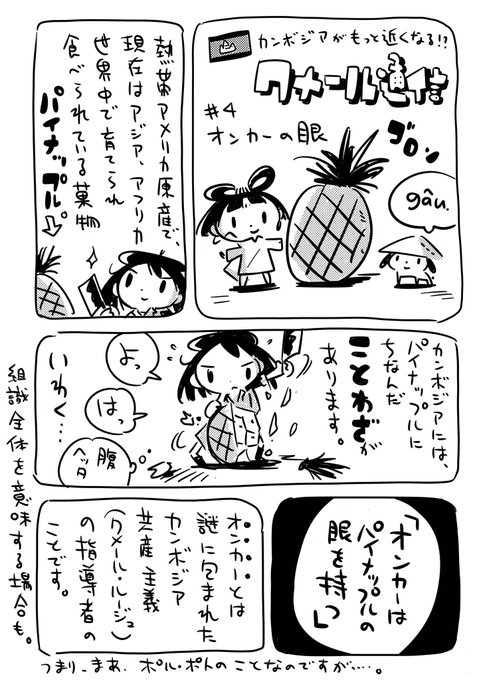 カンボジアがもっと近くなる!!
クメール通信
#4
オンカーの眼
ゴロン
gâu.
熱帯アメリカ原産で、
現在はアジア、アフリカ
世界中で育てられ
食べられている菓物
パイナップル。
カンボジアには、
パイナップルに
ちなんだ
ことわざが
あります。
よっ
はっ
腹
ヘッタ
いわく…
「オンカーは
パイナップルの
眼を持つ」
オンカーとは
謎に包まれた
カンボジア
共産主義
(クメール・ルージュ)
の指導者の
ことです。
組識全体を意味する場合も。
つまり、まあ、ポル・ポトのことなのですが…。